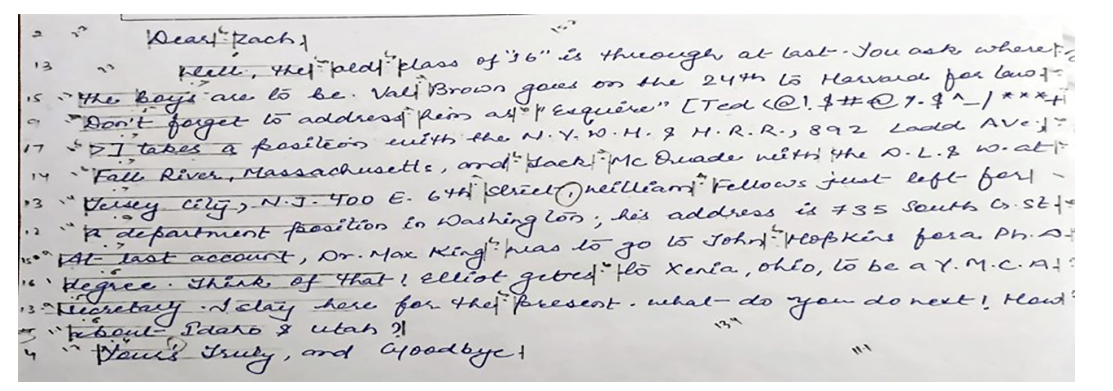 2 Dear Zach,
13 Well, the old class of "16" is through at last. You ask where
15 the boys are to be. Val Brown goes on the 24th to Harvard for law.
9 Don't forget to address him as "Esquire" [Ted <@!.$#@%.$^_/***+
17 >] takes a position with the N.Y.N.H. & H.R.R., 892 Ladd Ave.,
14 Fall River, Massachusetts, and Jack McQuade with the D.L. & W. at
13 Jersey City, N.J. 400 E. 6th Street, William Fellows just left for
12 a department position in Washington; his address is 735 South G. St.
15 At last account, Dr. Max King was to go to John Hopkins for a Ph.D.
16 degree. Think of that! Elliot goes to Xenia, Ohio, to be a Y.M.C.A.
13 Secretary. I stay here for the present. What do you do next! How
5 about Idaho & Utah?
4 Yours Truly, and Goodbye!